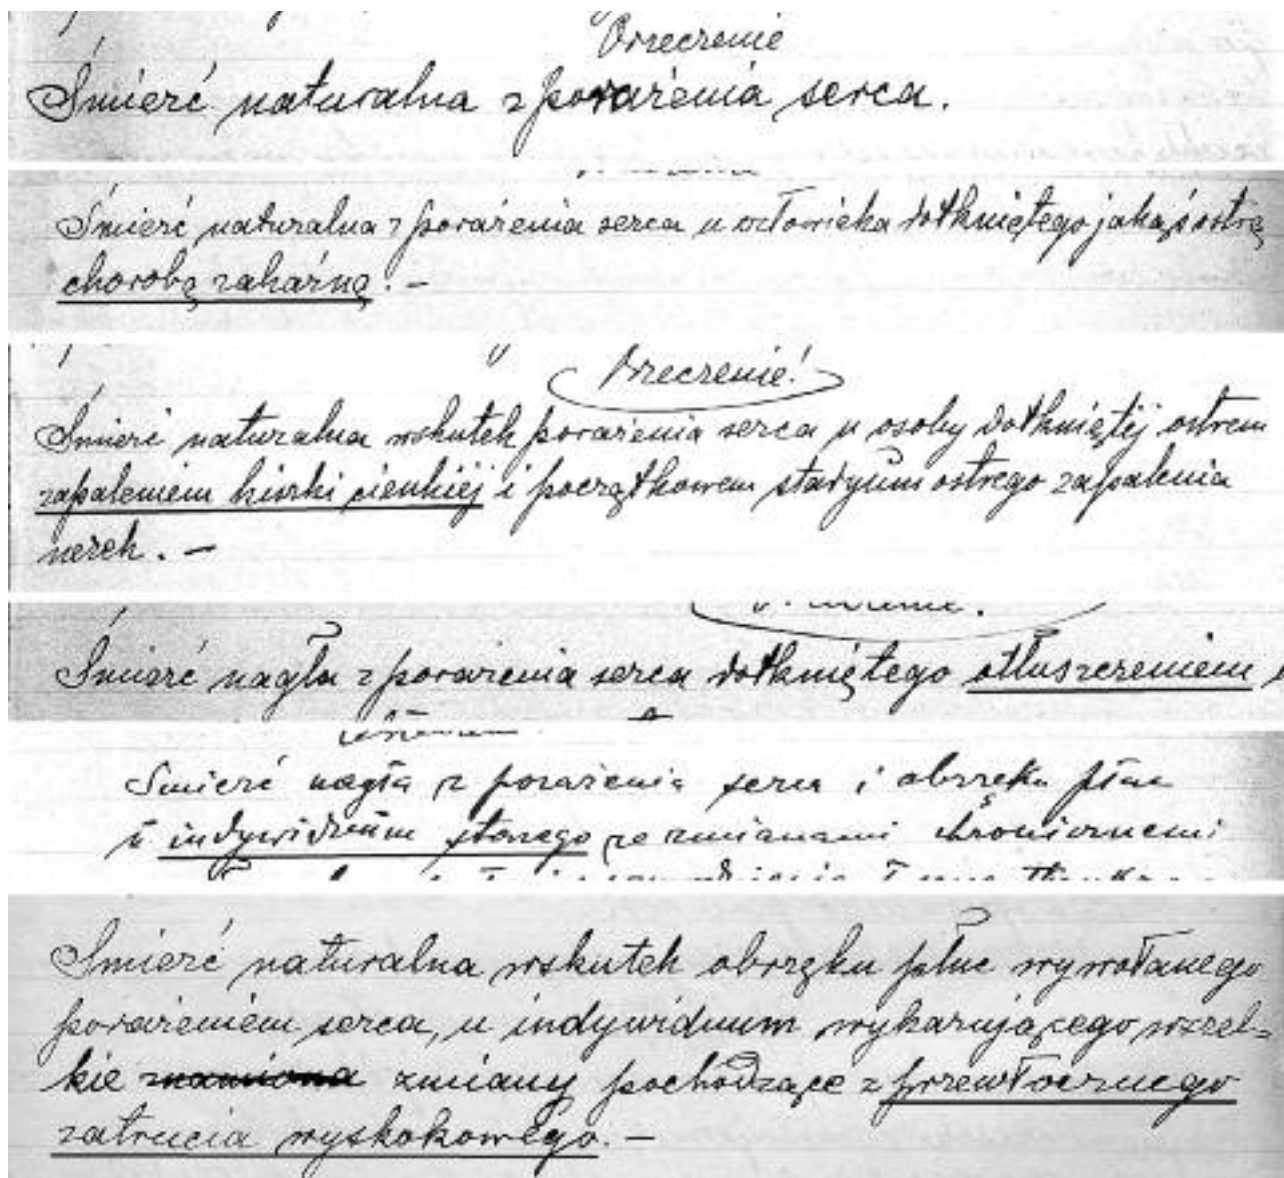 Orzeczenie
Śmierć naturalna z porażenia serca.
Śmierć naturalna z porażenia serca u człowieka dotkniętego jakąś ostrą
chorobą zakaźną. –
Orzeczenie!
Śmierć naturalna wskutek porażenia serca u osoby dotkniętéj ostrem
zapaleniem kiszki cienkiéj i początkowem stadyum ostrego zapalenia
nerek. –
Śmierć nagła z porażenia serca dotkniętego otłuszczeniem
Śmierć nagła z porażenia serca i obrzęku płuc
u indywiduum starego ze zmianami chronicznemi
Śmierć naturalna wskutek obrzęku płuc wywołanego
porażeniem serca, u indywiduum wykazującego wszel=
kie znamiona zmiany pochodzące z przewłocznego
zatrucia wyskokowego. –